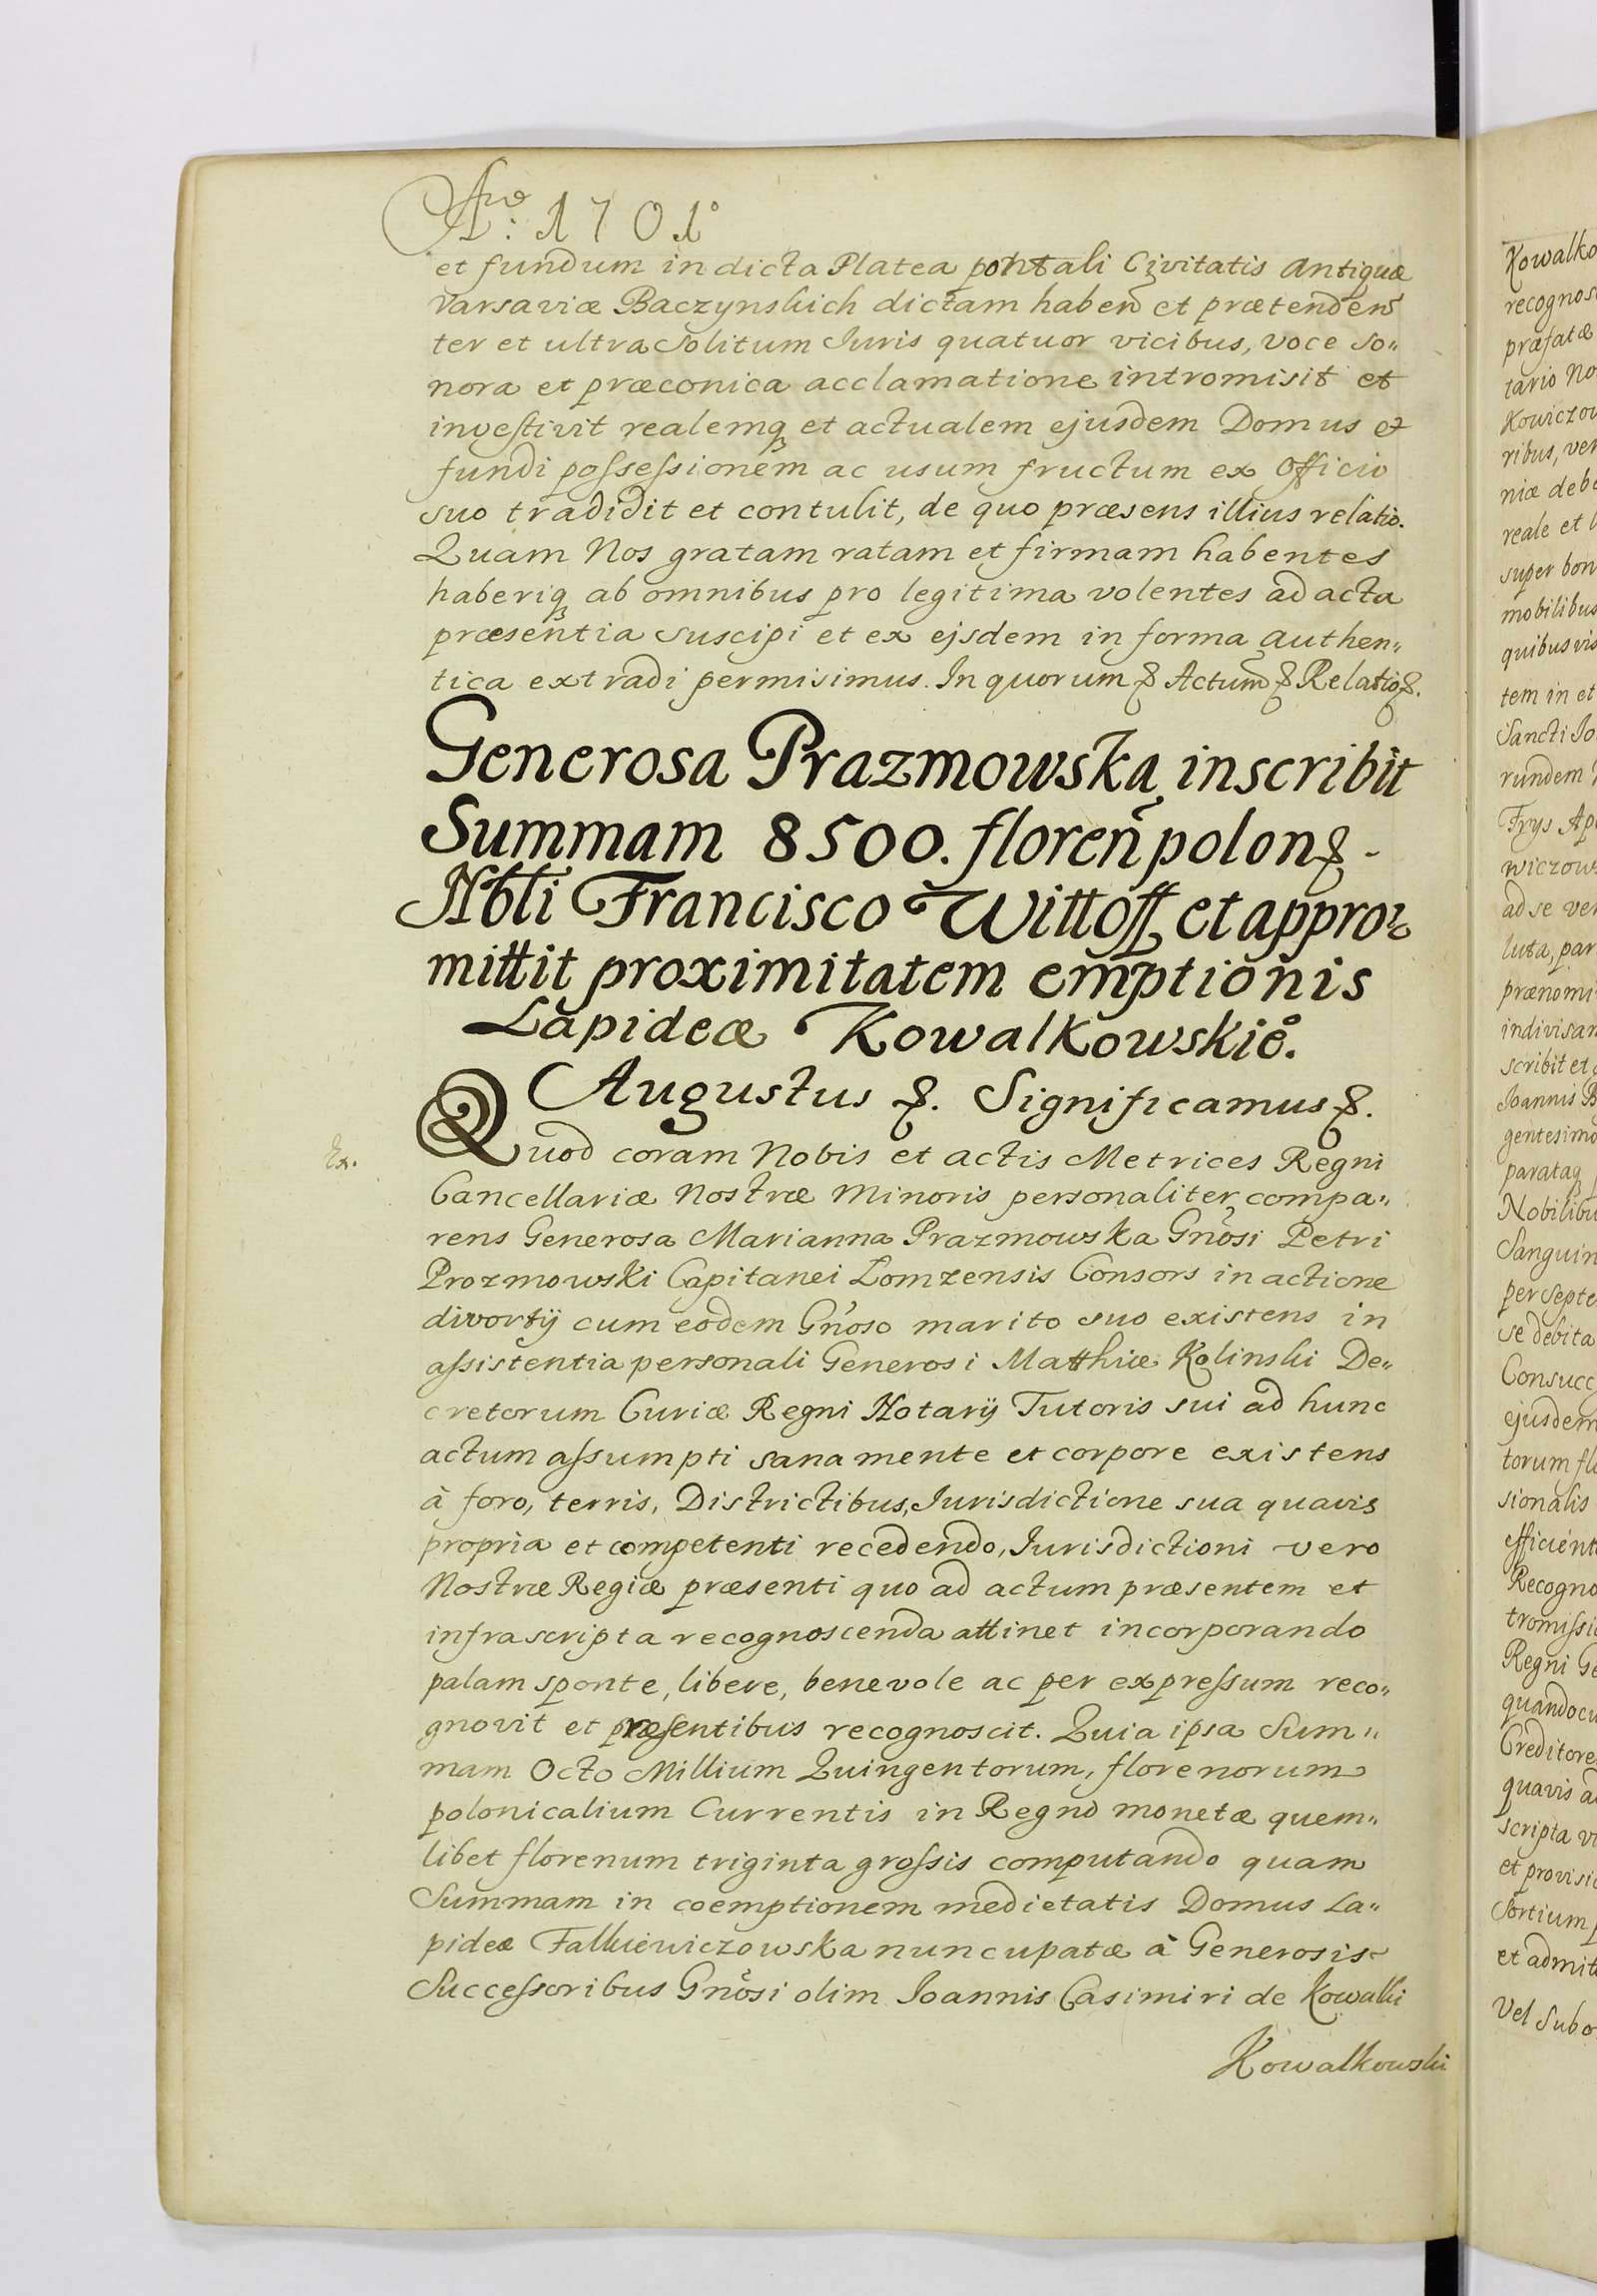 Ao: 1701o
et fundum in dicta Platea pontali Civitatis Antiquæ
Varsaviæ Baczynskich dictam haben et prætenden
ter et ultra solitum Iuris quatuor vicibus, voce so„
nora et præconica acclamatione intromisit et
investivit realemq et actualem ejusdem Domus et
fundi possessionem ac usum fructum ex Officio
suo tradidit et contulit, de quo præsens illius relatio.
Quam Nos gratam ratam et firmam habentes
haberiq ab omnibus pro legitima volentes ad acta
præsentia suscipi et ex ejsdem in forma authen„
tica extradi permisimus. In quorum & Actum & Relatio &.
Generosa Prazmowska inscribit
Summam 8500. floreñ polon &
Nbli Francisco Wittoff et appro„
mittit proximitatem emptionis
Lapideæ Kowalkowskie.
Augustus &. Significamus &.
Ex.
Quod coram Nobis et actis Metrices Regni
Cancellariæ Nostræ Minoris personaliter compa„
rens Generosa Marianna Prazmowska Gnosi Petri
Prozmowski Capitanei Lomzensis Consors in actione
divortij cum eodem Gnoso marito suo existens in
assistentia personali Generosi Matthiæ Kolinski De„
cretorum Curiæ Regni Notarij Tutoris sui ad hunc
actum assumpti sana mente et corpore existens
à foro, terris, Districtibus, Iurisdictione sua quavis
propria et competenti recedendo, Iurisdictioni vero
Nostræ Regiæ præsenti quo ad actum præsentem et
infrascripta recognoscenda attinet incorporando
palam sponte, libere, benevole ac per expressum reco„
gnovit et præsentibus recognoscit. Quia ipsa Sum„
mam Octo Millium Quingentorum, florenorum
polonicalium Currentis in Regno monetæ quem„
libet florenum triginta grossis computando quam
Summam in coemptionem medietatis Domus La„
pideæ Falkiewiczowska nuncupatæ à Generosis
Successoribus Gnosi olim Ioannis Casimiri de Kowalki
Kowalkowski
Kowalko
recognos
præfatæ
tario No
kowiczow
ribus, ver
niæ debe
reale et
super bon
mobilibus
quibusvis
tem in et
Sancti Io
rundem
Frys Ap
wiczows
ad se ver
luta, par
prænomi
indivisan
scribit et
Ioannis B
gentesimo
parataq
Nobilibu
Sanguin
per septe
se debita
Consucc
ejusdem
torum fl
sionalis
efficient
Recogno
tromissi
Regni Ge
quandocu
Creditore
quavis a
scripta v
et provisi
Sortium
et admit
Vel Subo